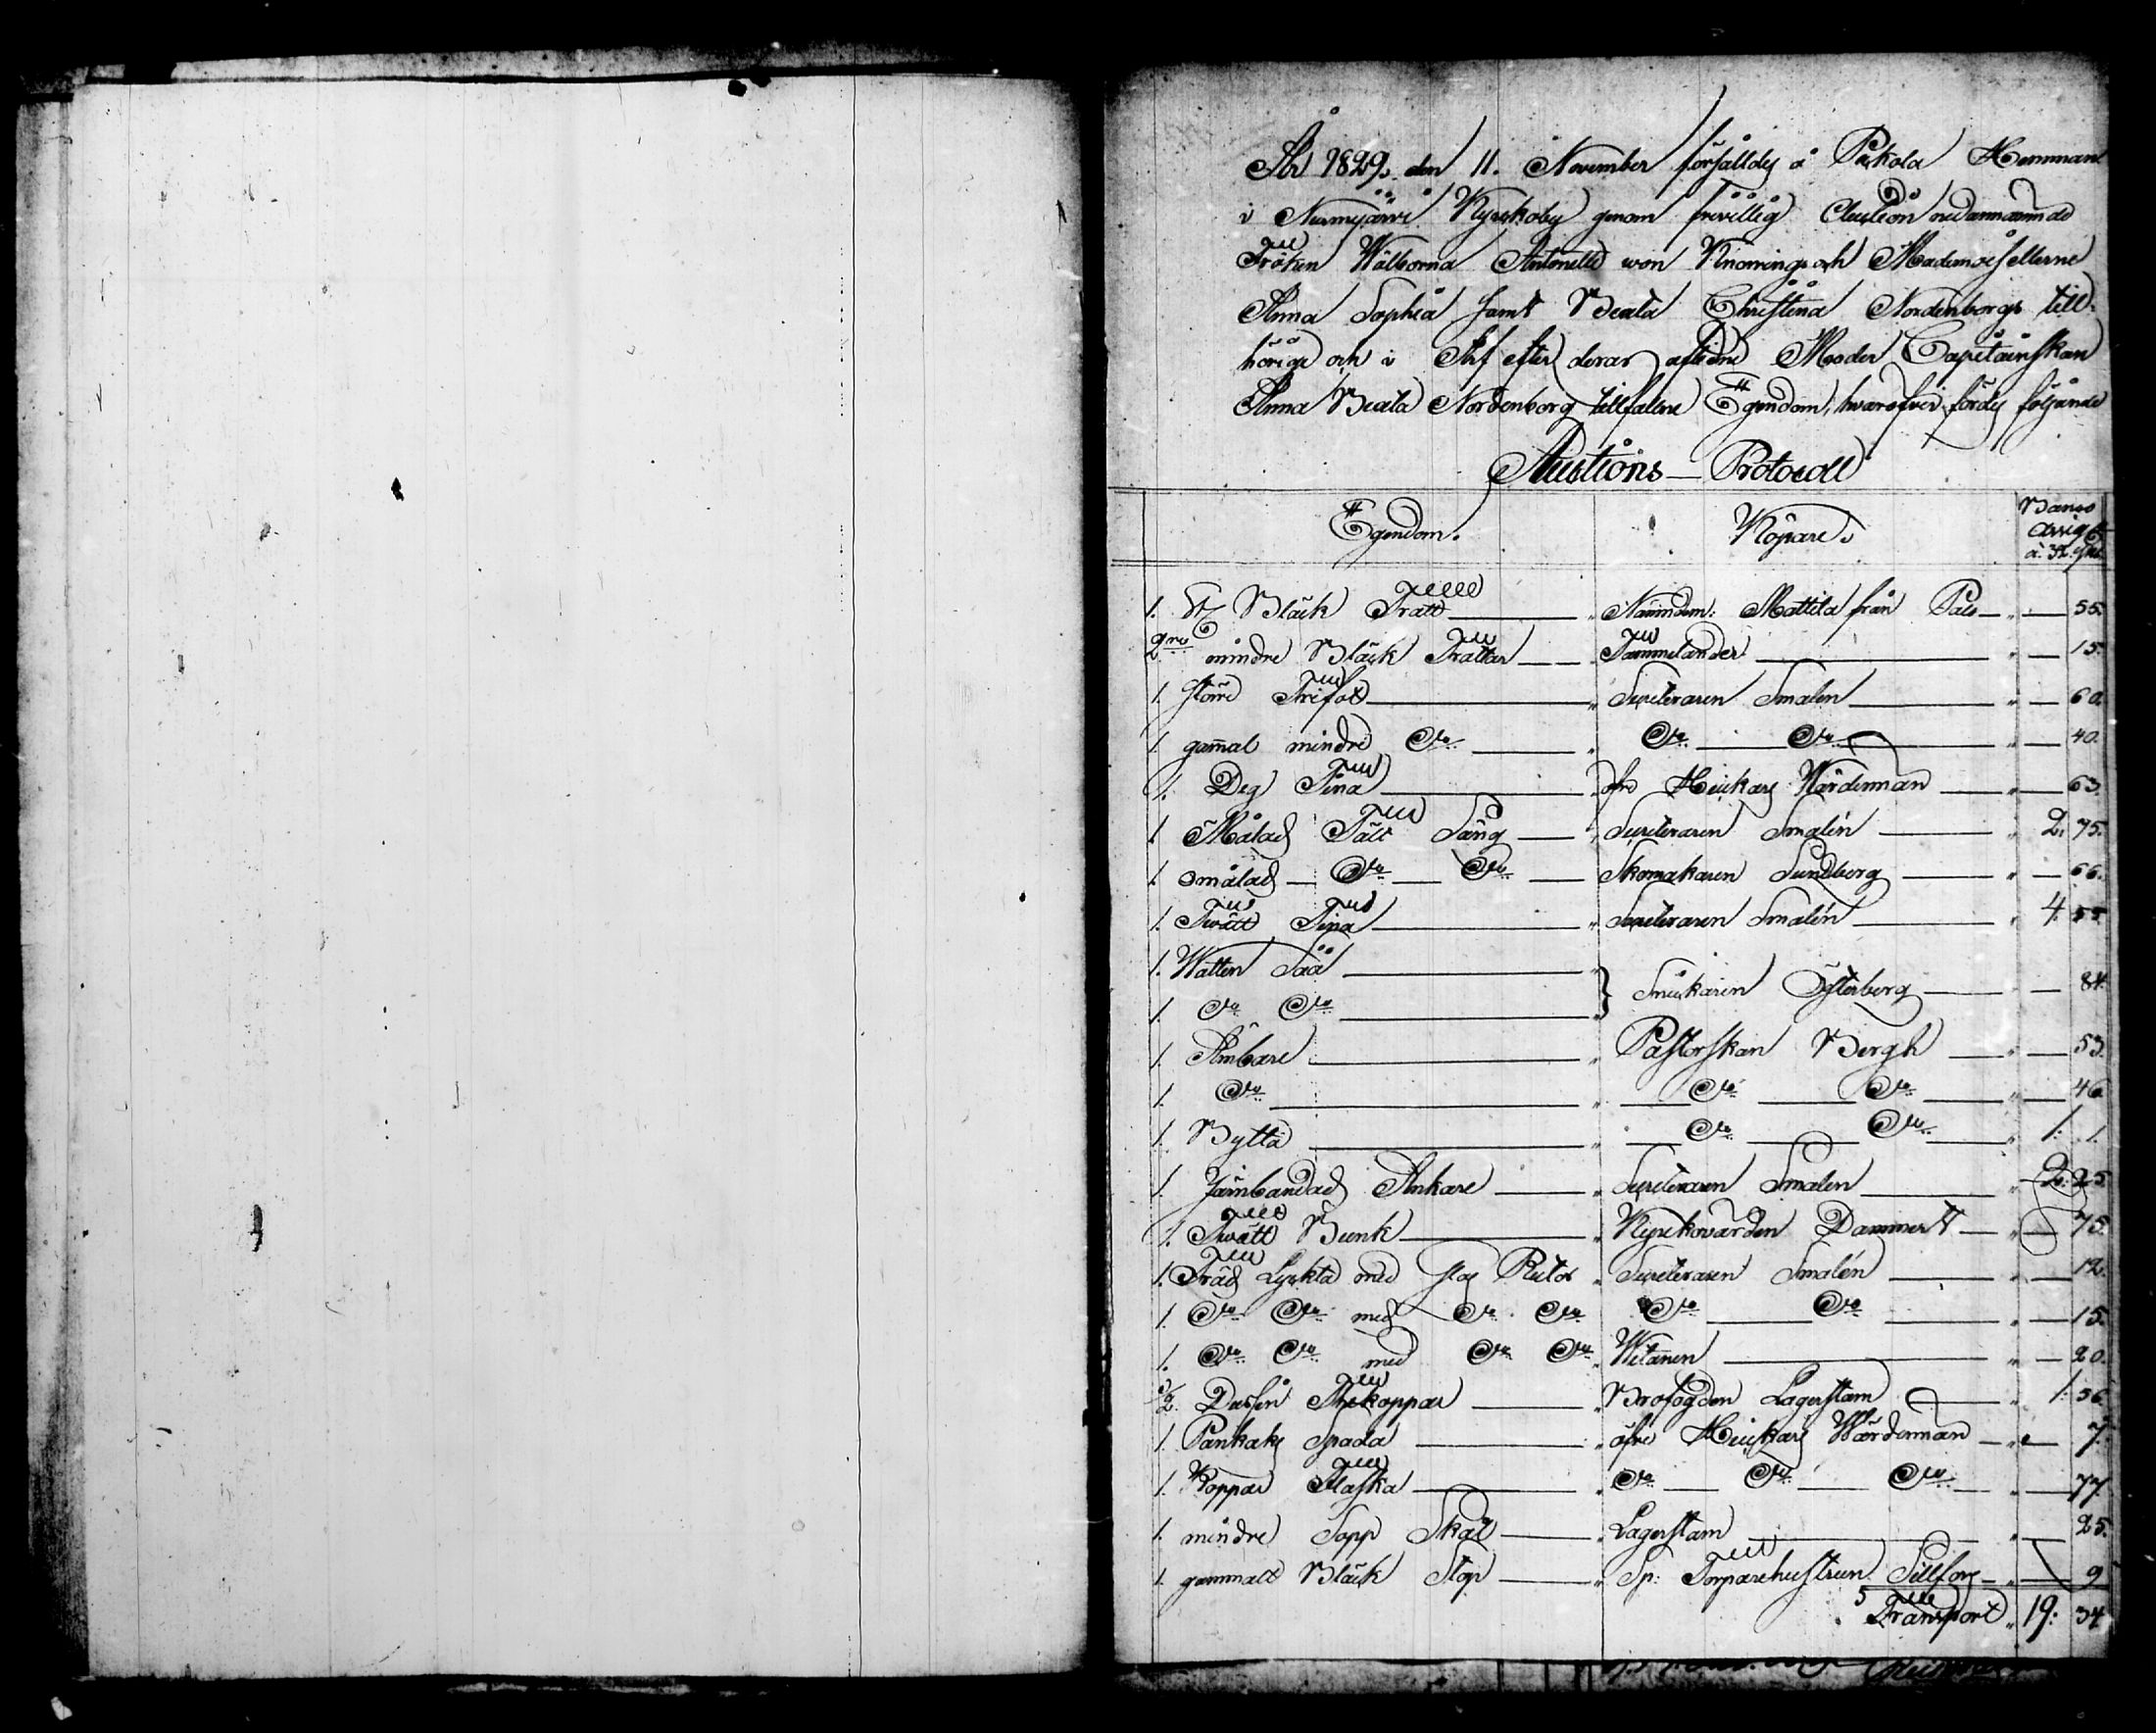 År 1829. den 11. November förrättades å Pekola Hemman
i Nurmijärvi Kyrkoby genom frivillig Auction nedannämnde
Fröken Wälborna Antonette von Knorring och Mademoisellerne
Anna Sophia samt Beata Christina Nordenborgs till-
hörige och i Arf efter deras aflidne Moder Capitainskan
Anna Beata Nordenborg tillfallne Egendom, hwaröfver fördes följande
Auctions-Protocoll
Egendom. Köpare. Banco Assig. à 
1. St. Bläck Tratt " Nämndem: Mattila från Palo " — 55.
2ne mindre Bläck Trattar " Tammelander " — 15.
1. större Trefot " Sequeteraren Smalen " — 60.
1. gammal mindre Do " Do Do " — 40.
1. Deg Tina " öfre Heickas Wärdinnan " — 63.
1. Målad Tält Säng " Smalén " 2. 75.
1. omålad Do Do Skomakaren Sundberg " — 66.
1. Twätt Tina " Smalén " 4. 55.
1. Watten Såå "
1. Do Do " } Snickaren Österberg — 84.
1. Ämbare " Pastorskan Bergh " — 53.
1. Do " Do Do " — 46.
1. Bytta " Do Do " 1: 1.
1. Järnbandad Ankare " Smalen " 2: 25.
1. Twätt Bunk " Kyrkovärden Dammert " — 75.
1. Träd Lyckta med Rutor " Smalén " — 12.
1. Do Do med Do Do Do Do " — 15.
1. Do Do med Do Do " Witanen " — 20.
1/2 Dussin Thekoppar " Brofogden Lagerstam " 1: 56.
1. Pankaks Spada " öfre Heickas Wärdinnan " — 7.
1. Koppar Flaska " Do Do Do " — 77.
1. mindre Sopp Skål " Lagerstam " — 25.
1. gammalt Bläck Stop " Sp: Torparehustrun Sillfors " — 9
Transport " 19: 34